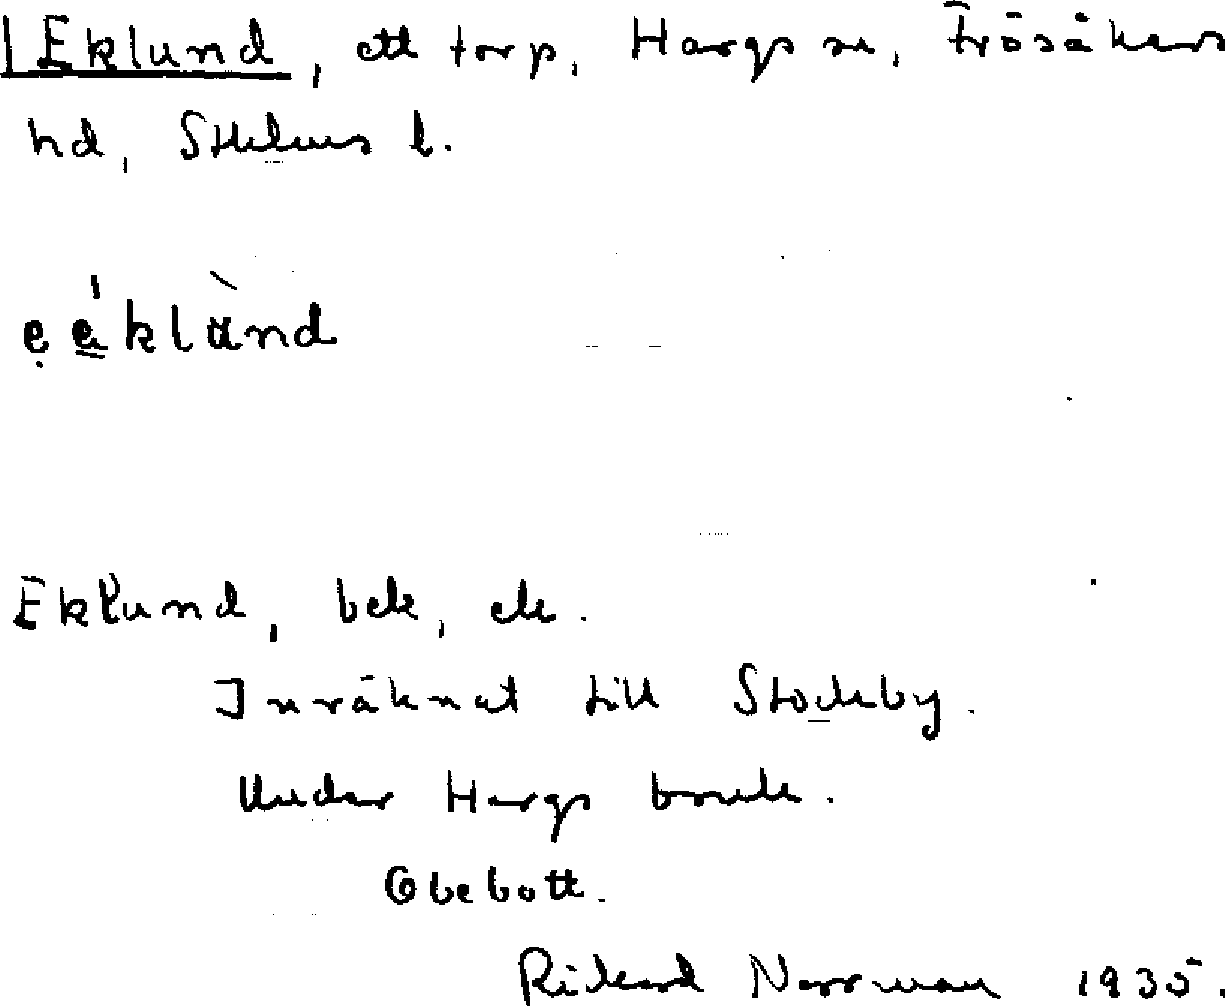 Eklund, ett torp, Hargs sn, Frösåkers
hd, Sthlms l.
eéklùnd
Eklund, bek, ek.
Inräknat till Stockby.
Under Hargs bruk.
Obebott.
Rikard Norrman 1935.